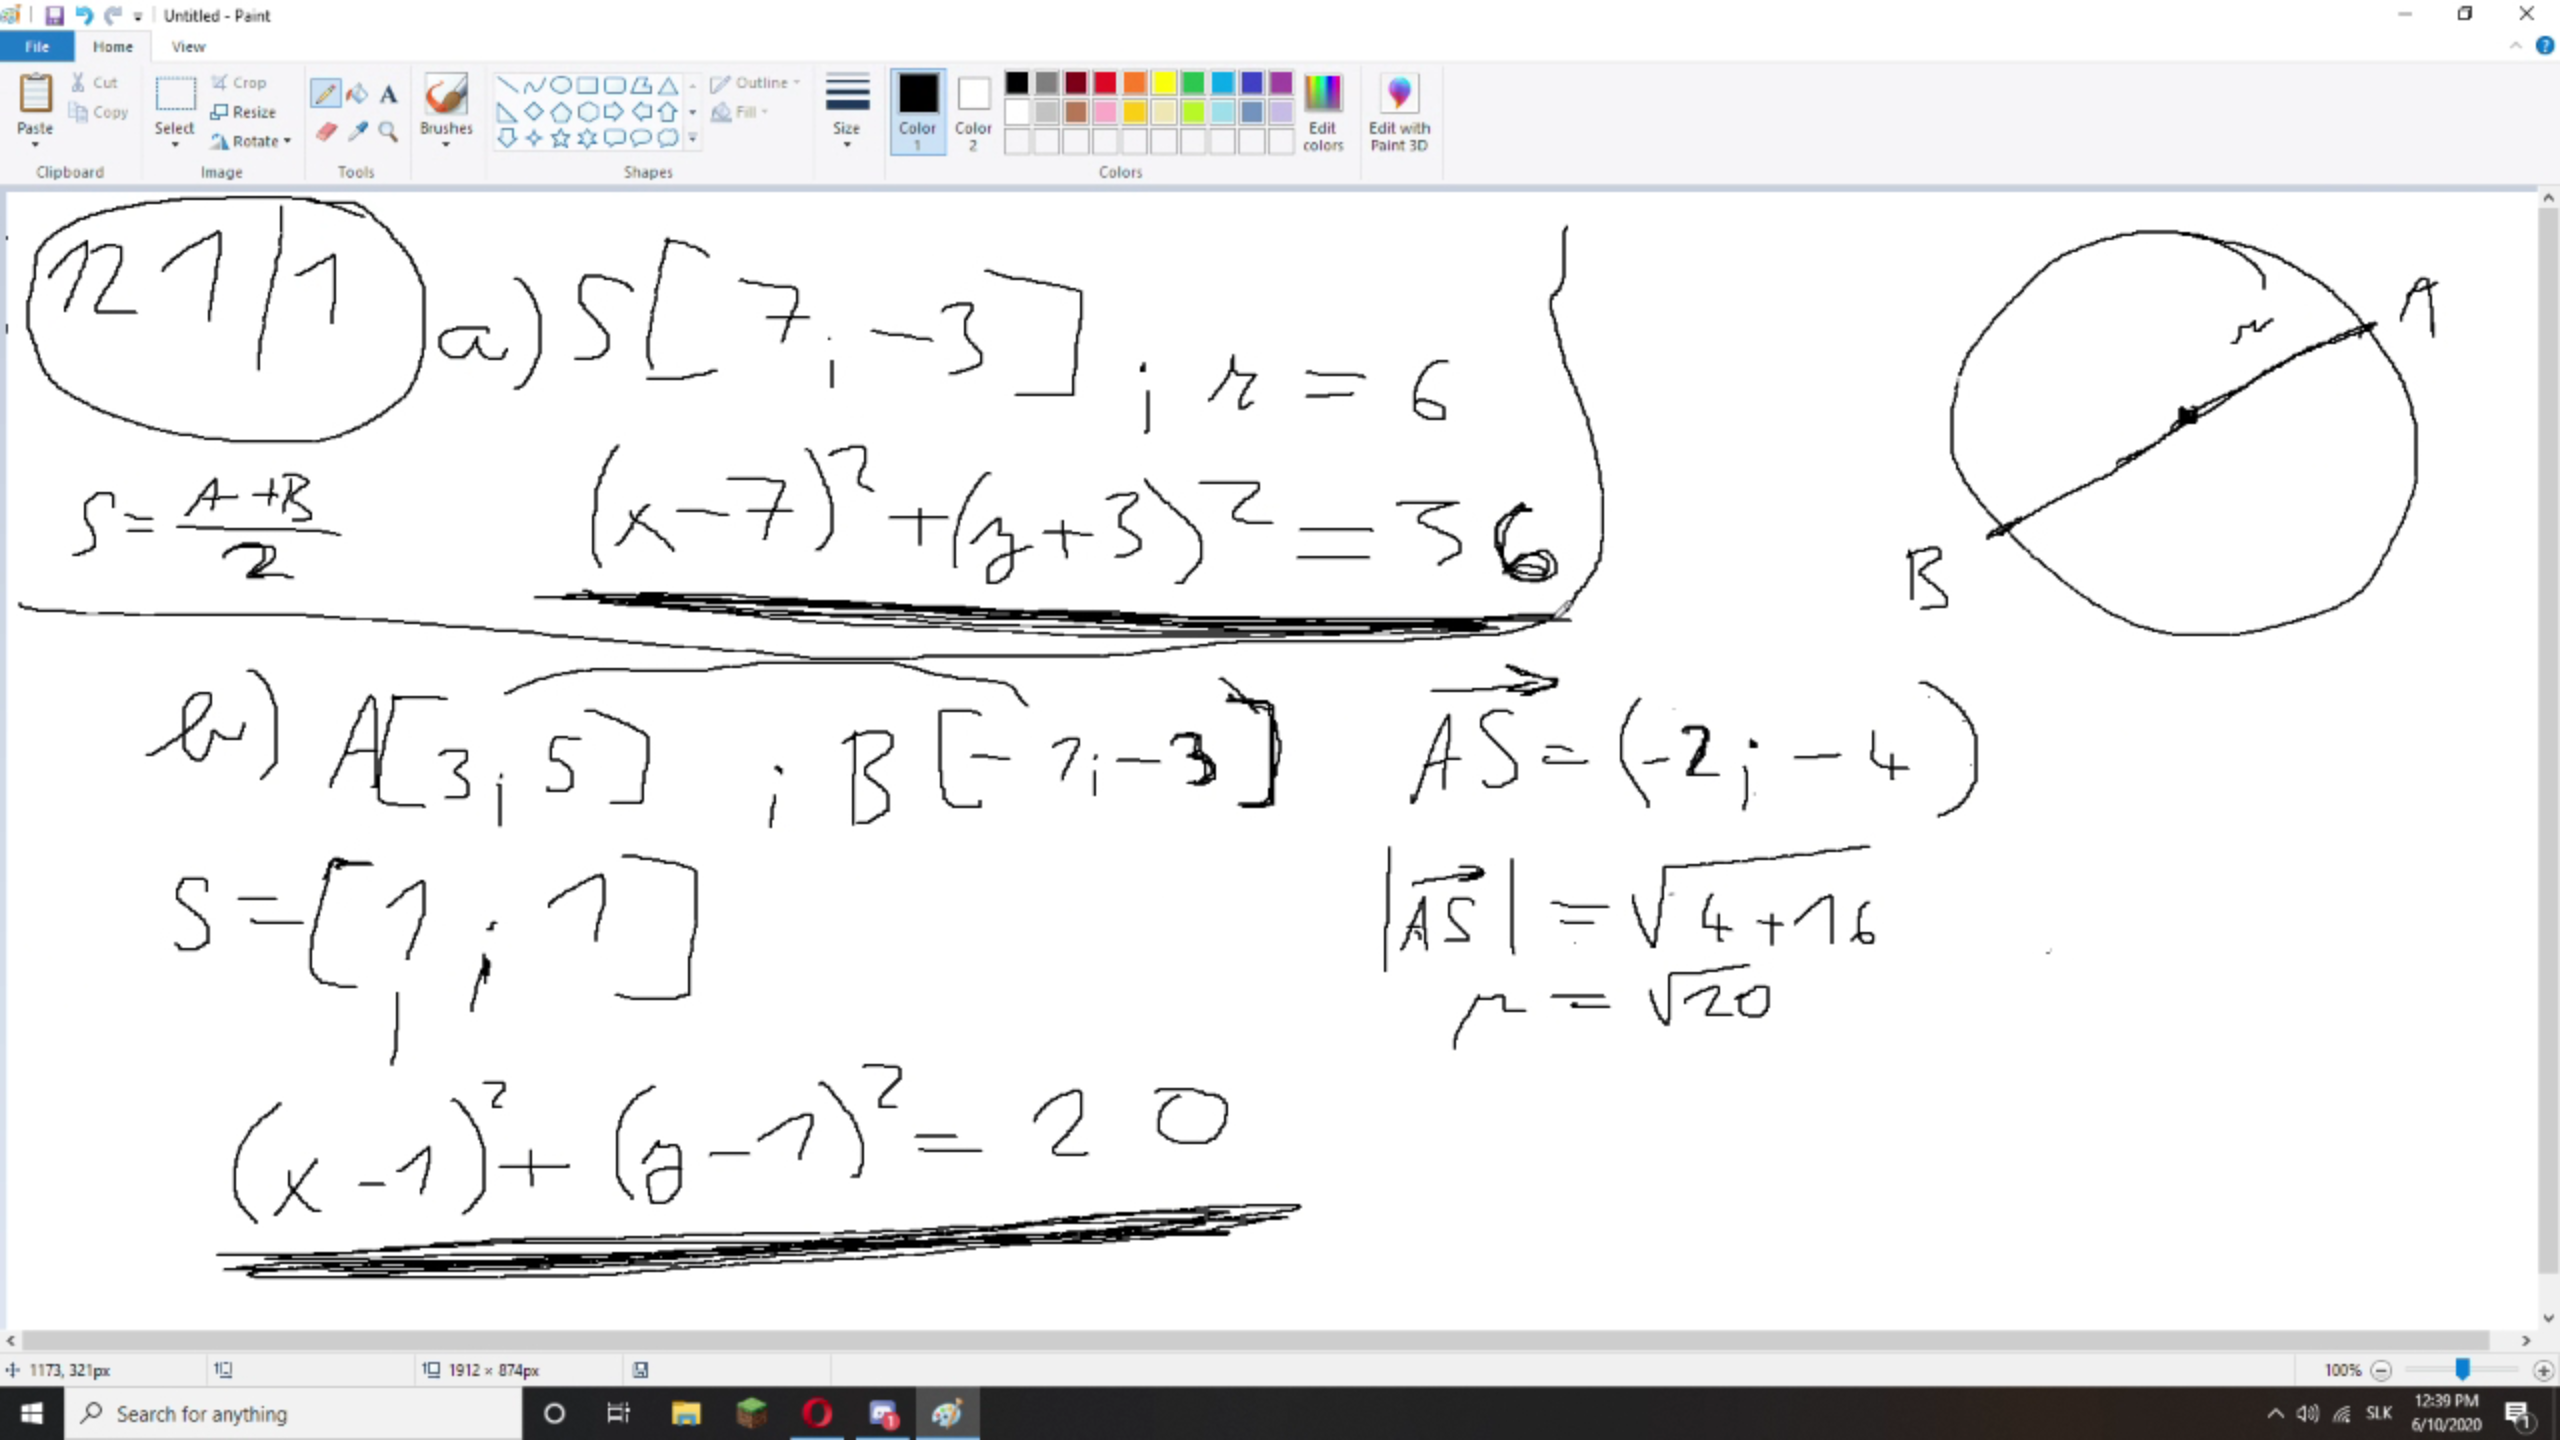 Untitled - Paint
File Home View
Paste
Cut
Copy
Clipboard
Select
Crop
Resize
Rotate
Image
Tools
Brushes
Shapes
Outline
Fill
Size
Color 1
Color 2
Edit colors
Edit with Paint 3D
Colors
121/1
a) S[7; -3] ; r = 6
S = (A+B)/2
(x-7)² + (y+3)² = 36
A
r
B
b) A[3; 5] ; B[-1; -3]
AS = (-2; -4)
S = [1; 1]
|AS| = √4+16
r = √20
(x-1)² + (y-1)² = 20
1173, 321px
1912 × 874px
100%
Search for anything
SLK
12:39 PM
6/10/2020